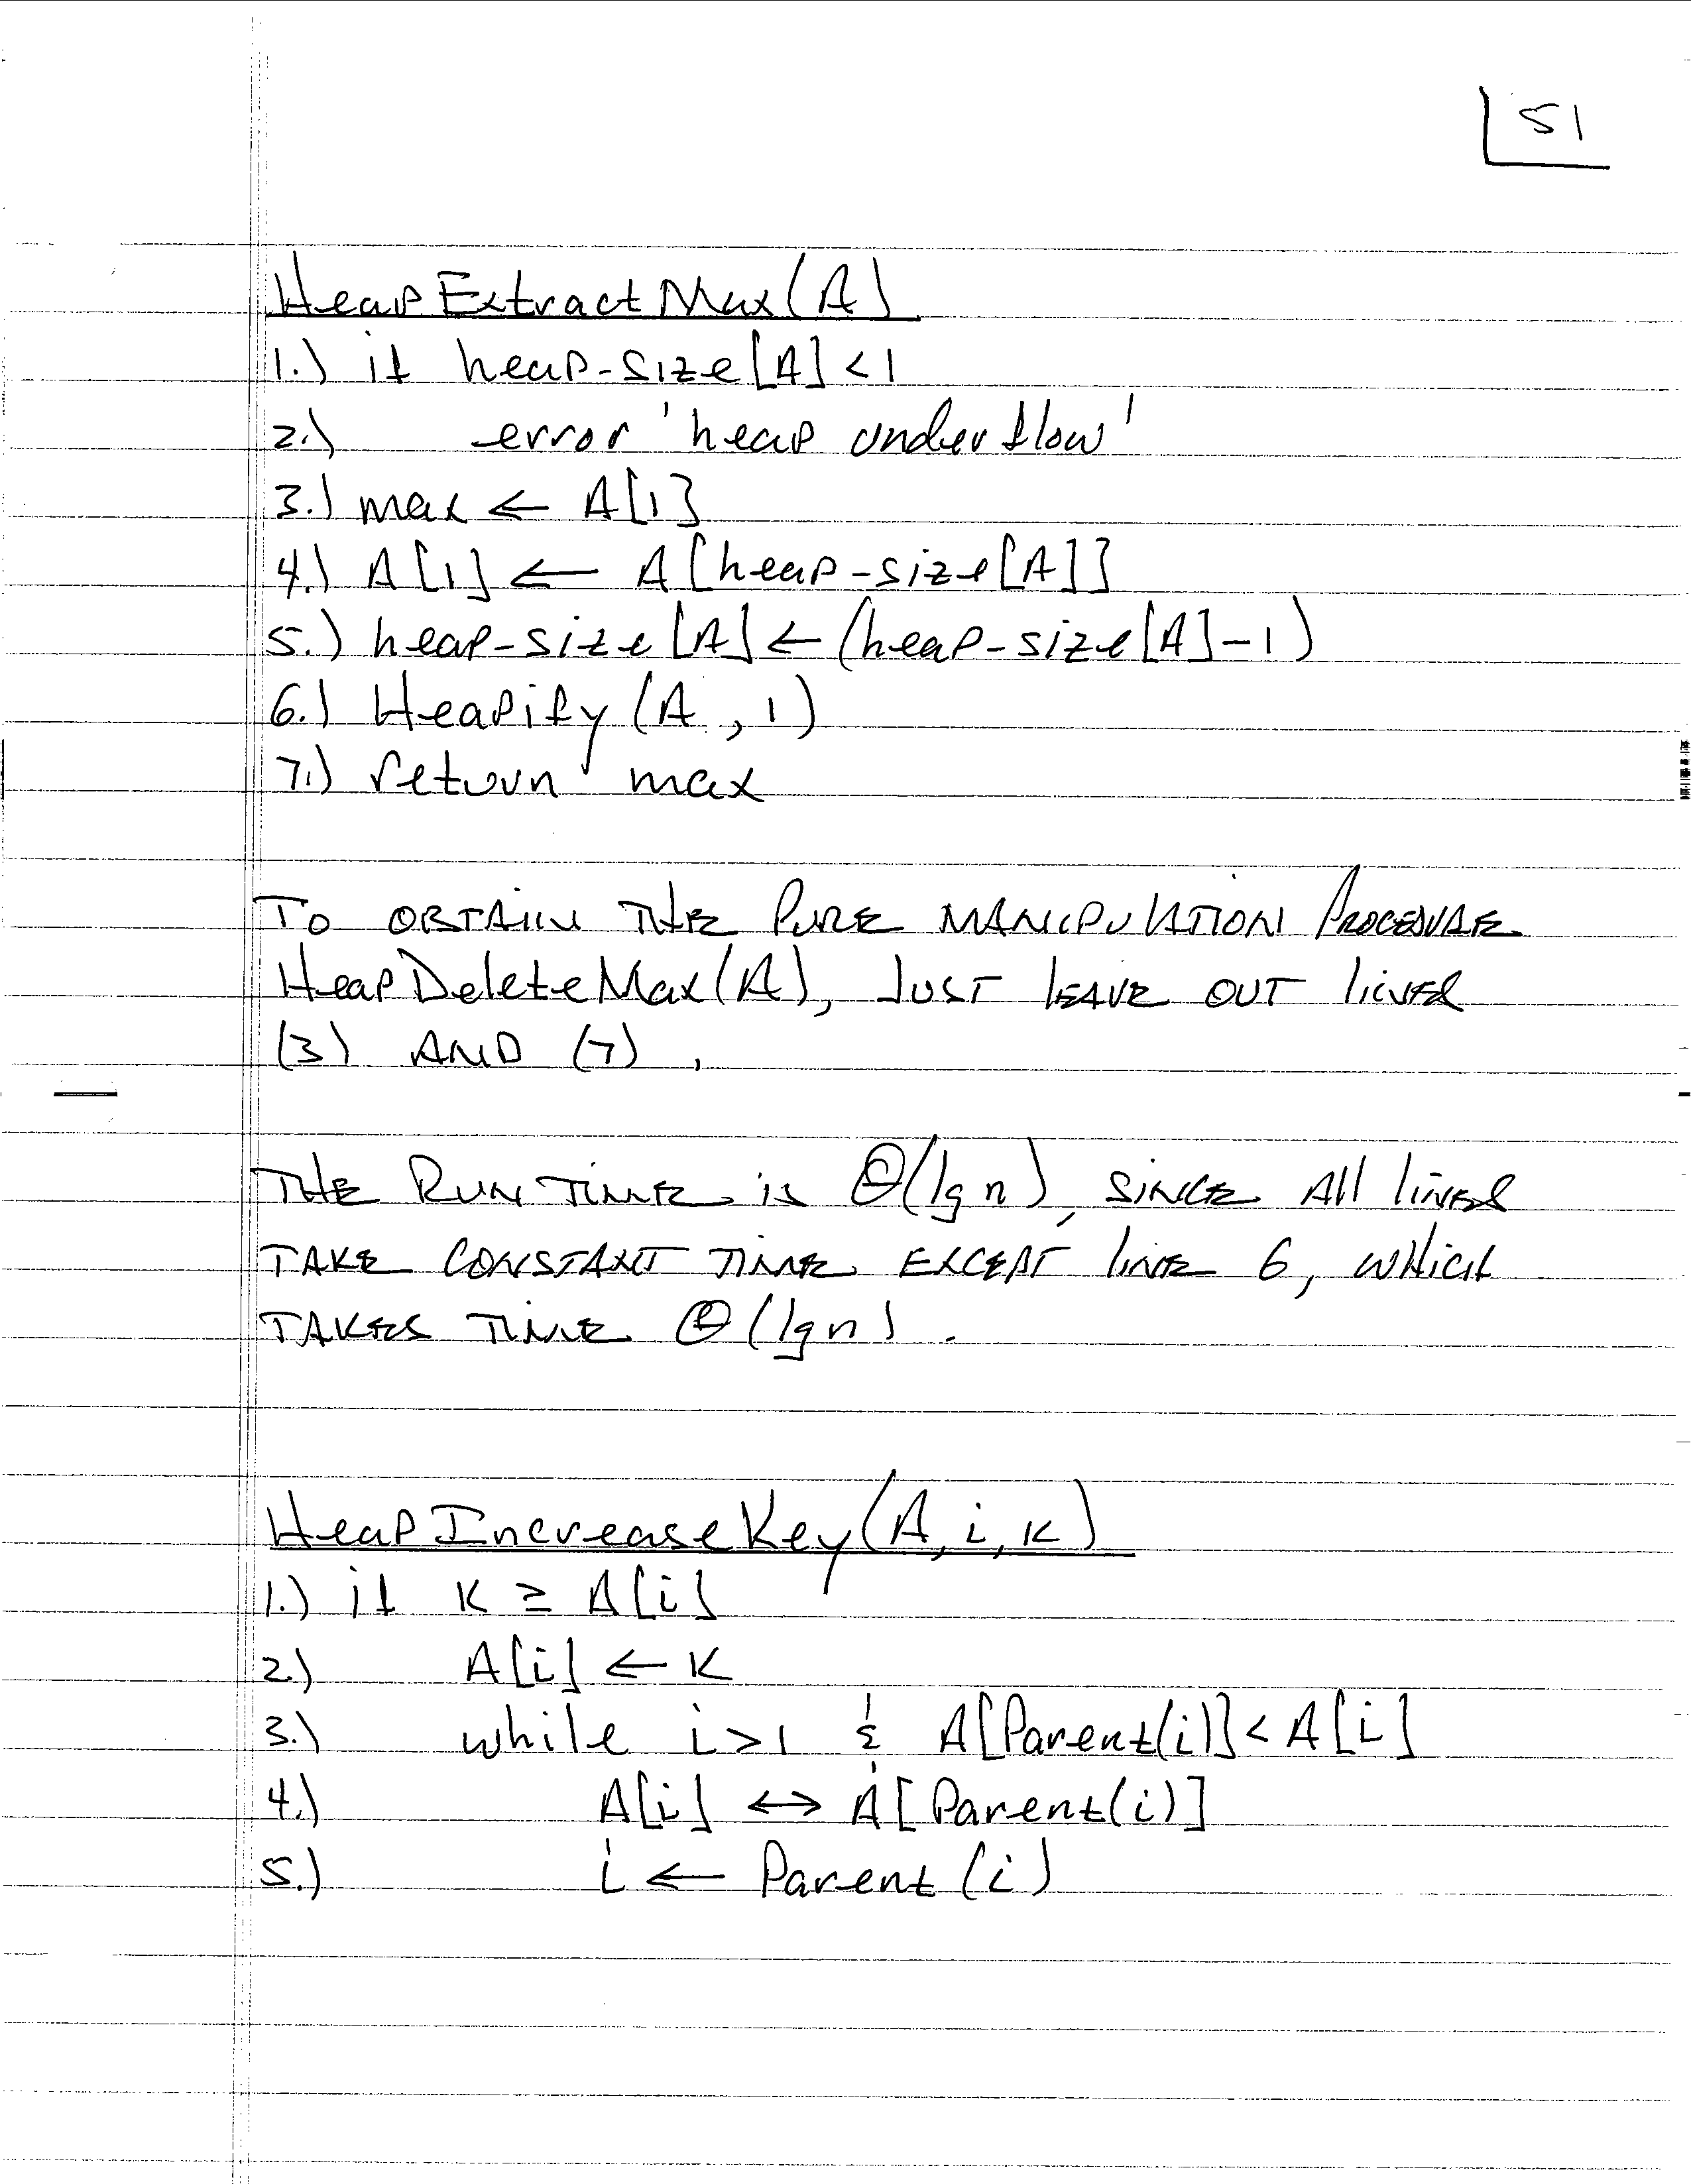 51
HeapExtractMax(A)
1.) if heap-size[A] < 1
2.) error 'heap underflow'
3.) max ← A[1]
4.) A[1] ← A[heap-size[A]]
5.) heap-size[A] ← (heap-size[A]-1)
6.) Heapify(A, 1)
7.) return max
To obtain the pure manipulation procedure
HeapDeleteMax(A), just leave out lines
(3) and (7).
The run time is Θ(lg n), since all lines
take constant time except line 6, which
takes time Θ(lg n).
HeapIncreaseKey(A, i, k)
1.) if k ≥ A[i]
2.) A[i] ← k
3.) while i > 1 & A[Parent(i)] < A[i]
4.) A[i] ↔ A[Parent(i)]
5.) i ← Parent(i)